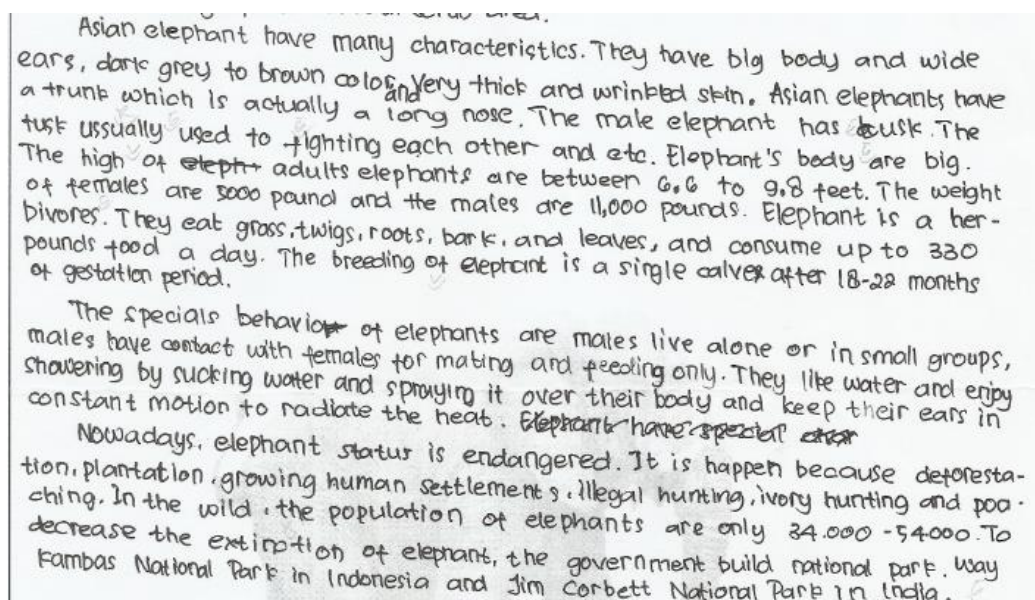 Asian elephant have many characteristics. They have big body and wide
ears, dark grey to brown color, and Very thick and wrinkled skin. Asian elephants have
a trunk which is actually a long nose. The male elephant has tusk. The
tusk ussually used to fighting each other and etc. Elephant's body are big.
The high of eleph adults elephants are between 6.6 to 9.8 feet. The weight
of females are 5000 pound and the males are 11,000 pounds. Elephant is a her-
bivores. They eat grass, twigs, roots, bark, and leaves, and consume up to 330
pounds food a day. The breeding of elephant is a single calves after 18-22 months
of gestation period.
The specials behavior of elephants are males live alone or in small groups,
males have contact with females for mating and feeding only. They like water and enjoy
showering by sucking water and spraying it over their body and keep their ears in
constant motion to radiate the heat. Elephant have special
Nowadays, elephant status is endangered. It is happen because deforesta-
tion, plantation, growing human settlements, illegal hunting, ivory hunting and poo-
ching. In the wild, the population of elephants are only 34.000 - 54000. To
decrease the extinction of elephant, the government build national park. Way
Kambas National Park in Indonesia and Jim Corbett National Park in India.